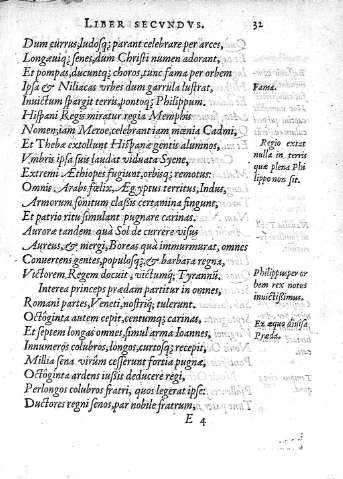 LIBER SECVNDVS. 32
Dum currus, ludosq; parant celebrare per arces,
Longæuiq; senes, dum Christi numen adorant,
Et pompas, ducuntq; choros, tunc fama per orbem
Ipsa & Niliacas vrbes dum garrula lustrat,
Fama.
Inuictum spargit terris, pontoq; Philippum.
Hispani Regis miratur regia Memphis
Nomen; iam Meroe, celebrant iam mœnia Cadmi,
Et Thebæ extollunt Hispanæ gentis alumnos,
Regio extat
Vmbris ipsa suis laudat viduata Syene,
nulla in terris
Extremi Æthiopes fugiunt, orbisq; remotus:
quæ plena Phi
Omnis Arabs fœlix, Ægyptus territus, Indus,
lippo non sit.
Armorum sonitum classis certamina fingunt,
Et patrio ritu simulant pugnare carinas.
Auroræ tandem quà Sol de currere visus
Aureus, & mergi, Boreas quà immurmurat, omnes
Conuertens gentes, populosq; & barbara regna,
Victorem Regem docuit, victumq; Tyrannũ.
Philippus per or
Interea princeps prædam partitur in omnes,
bem rex notus
Romani partes, Veneti, nostriq; tulerunt.
inuictissimus.
Octoginta autem cepit, centumq; carinas,
Et septem longas omnes, simul arma Ioannes,
Ex æquo diuisa
Innumeros colubros, longos, curtosq; recepit,
Præda.
Millia sena virûm cesserunt fortia pugnæ,
Octoginta ardens iussit deducere regi,
Perlongos colubros fratri, quos legerat ipse:
Ductores regni senos, par nobile fratrum,
E 4